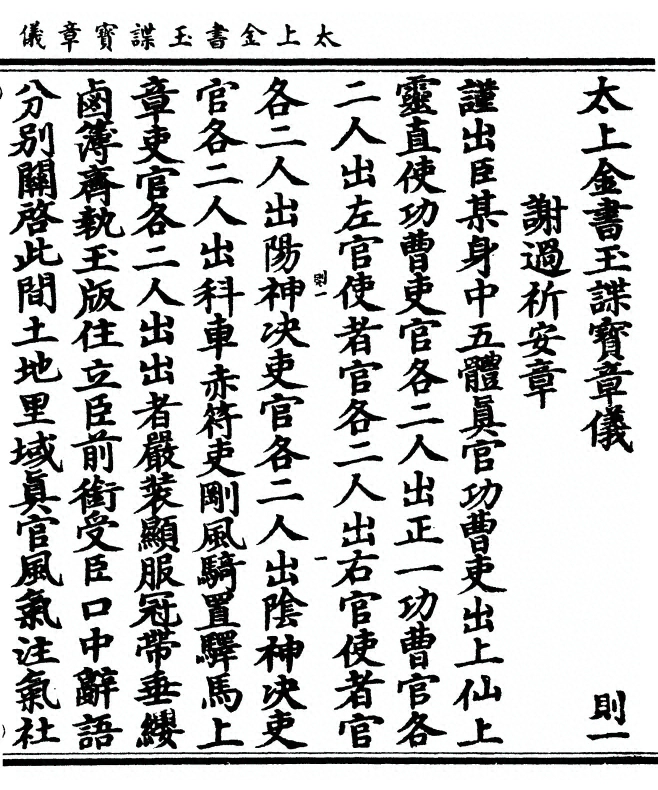 太上金書玉諜寶章儀
太上金書玉諜寶章儀 則一
謝過祈安章
謹出臣某身中五體真官功曹吏出上仙上
靈直使功曹吏官各二人出正一功曹官各
二人出左官使者官各二人出右官使者官
則一 一
各二人出陽神决吏官各二人出陰神决吏
官各二人出科車赤符吏剛風騎置驛馬上
章吏官各二人出出者嚴裝顯服冠帶垂纓
鹵簿齊執玉版住立臣前銜受臣口中辭語
分別關啓此間土地里域真官風氣注氣社